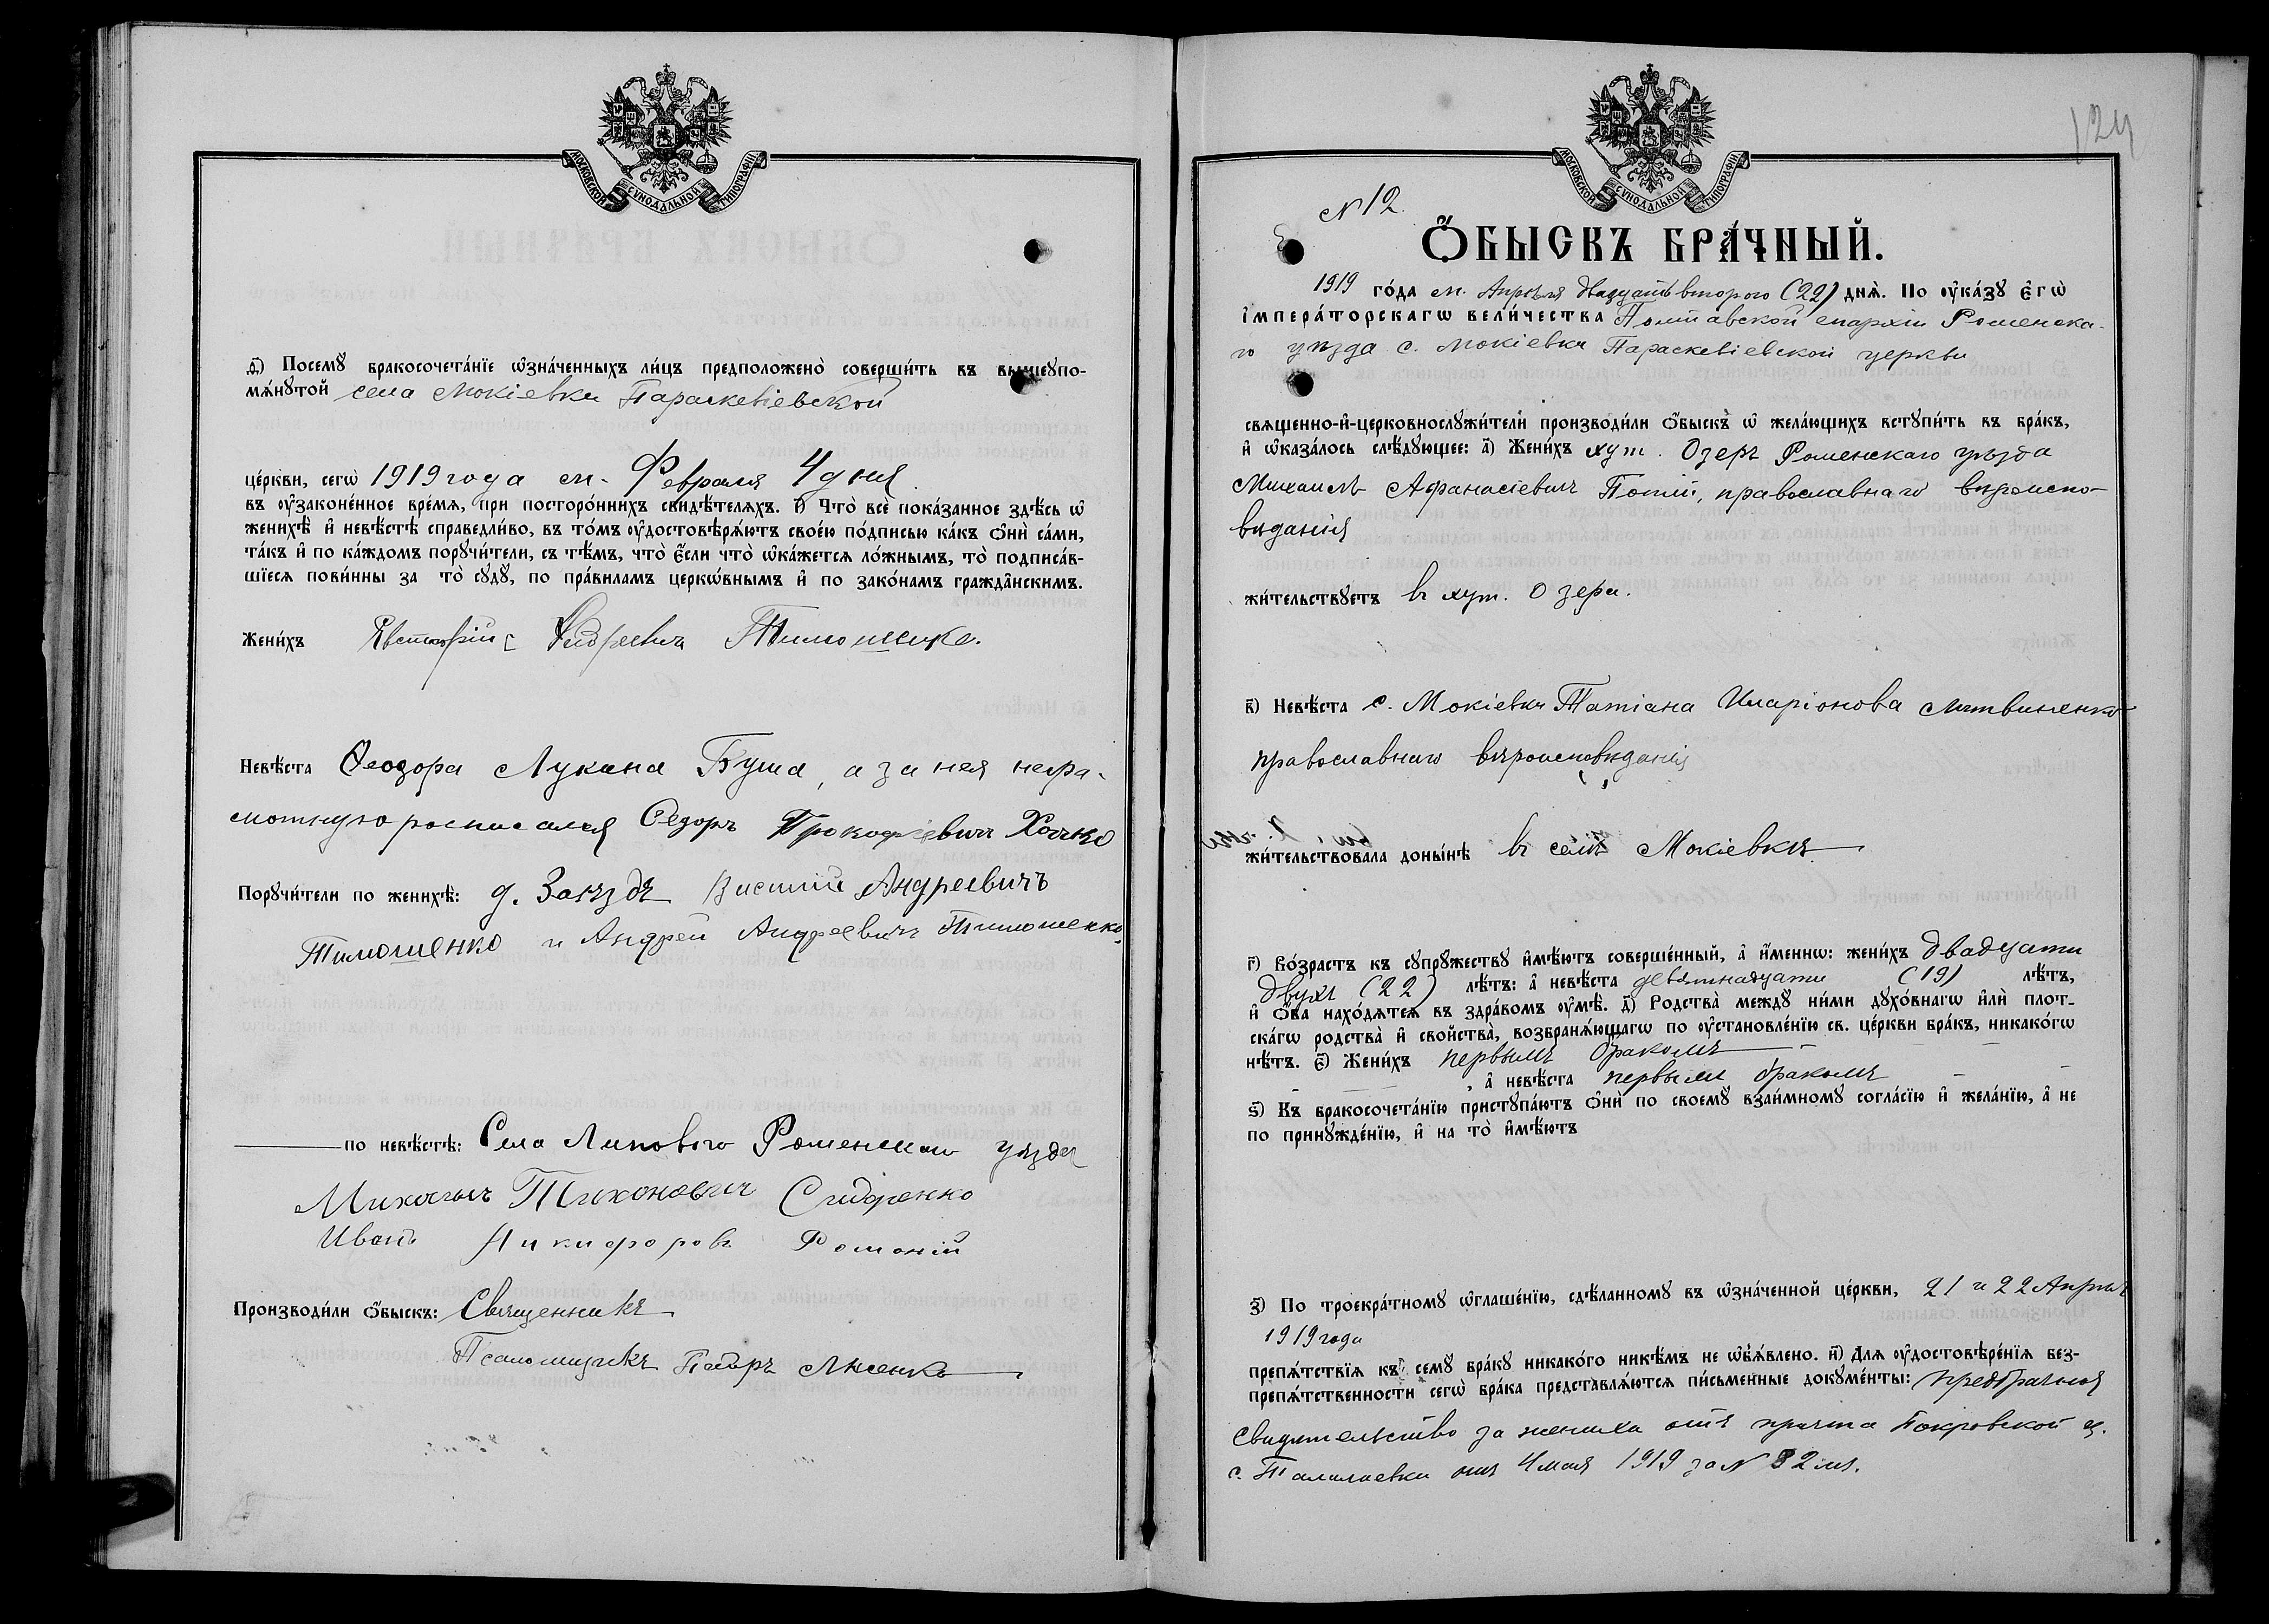 МОСКОВСКОЙ СѴНОДАЛЬНОЙ ТИПОГРАФІИ
д҃) Посемꙋ бракосочета́нїе ѡ҆зна́ченныхъ ли́цъ предположено̀ соверши́ть въ вышеꙋпо-
мѧ́нꙋтой села Мокіевки Параскевіевской
це́ркви, сегѡ̀ 1919 года м. Февраля 4 дня
въ ᲂу҆законе́нное вре́мѧ, при посторо́ннихъ свидѣ́телѧхъ. і҃) Что̀ всѐ пока́занное здѣ́сь ѡ҆
женихѣ̀ и҆ невѣ́стѣ справедли́во, въ то́мъ ᲂу҆достовѣрѧ́ютъ свое́ю по́дписью ка́къ ѻ҆нѝ са́ми,
та́къ и҆ по ка́ждомъ порꙋчи́тели, съ тѣ́мъ, что̀ є҆́сли что̀ ѡ҆ка́жетсѧ ло́жнымъ, то̀ подписа́в-
шїесѧ пови́нны за то̀ сꙋдꙋ̀, по пра́виламъ церкѡ́внымъ и҆ по зако́намъ гражда́нскимъ.
Жени́хъ Андреевичъ Тимошенко.
Невѣ́ста Ѳеодора Лукина Буша, а за нея негра-
мотную росписался Ѳедоръ Прокофіевичъ
Порꙋчи́тели по женихѣ̀: д. Заѣздъ Василій Андреевичъ
Тимошенко и Андрей Андреевичъ Тимошенко.
по невѣ́стѣ: Села Липового Роменскаго уѣзда
Михаилъ Тихоновичъ Сидоренко
Иванъ Никифоровъ
Производи́ли ѻ҆́быскъ: Священникъ
Псаломщикъ Лысенко
124
МОСКОВСКОЙ СѴНОДАЛЬНОЙ ТИПОГРАФІИ
N 12.
Ѻ҆́БЫСКЪ БРА́ЧНЫЙ.
1919 го́да м. Апрѣля двадцать второго (22) днѧ̀. По ᲂу҆ка́зꙋ є҆гѡ̀
і҆мпера́торскагѡ вели́чества Полтавской епархіи Роменска-
го уѣзда с. Мокіевки Параскевіевской церкви
свѧщенно-и҆-церковнослꙋжи́тели производи́ли ѻ҆́быскъ ѡ҆ жела́ющихъ встꙋпи́ть въ бра́къ,
и҆ ѡ҆каза́лось слѣ́дꙋющее: а҃) Жени́хъ хут. Озеръ Роменскаго уѣзда
Михаилъ Афанасіевичъ православнаго вѣроиспо-
вѣданія
жи́тельствꙋетъ въ хут. Озера.
в҃) Невѣ́ста с. Мокіевки Татіана Иларіонова Литвиненко
православнаго вѣроисповѣданія
жи́тельствовала доны́нѣ въ селѣ Мокіевкѣ
г҃) Во́зрастъ къ сꙋпрꙋжествꙋ и҆мѣ́ютъ соверше́нный, а҆ и҆́меннѡ: жени́хъ двадцати
двухъ (22) лѣ́тъ: а҆ невѣ́ста девятнадцати (19) лѣ́тъ,
и҆ ѻ҆́ба нахо́дѧтсѧ въ здра́вомъ ᲂу҆мѣ̀. д҃) Родства̀ междꙋ ни́ми дꙋхо́внагѡ и҆лѝ плот-
ска́гѡ родства̀ и҆ свойства̀, возбранѧ́ющагѡ по ᲂу҆становле́нїю св. це́ркви бра́къ, никако́гѡ
нѣ́тъ. є҃) Жени́хъ первымъ бракомъ
, а҆ невѣ́ста первымъ бракомъ
ѕ҃) Къ бракосочета́нїю пристꙋпа́ютъ ѻ҆нѝ по своемꙋ взаи́мномꙋ согла́сїю и҆ жела́нїю, а҆ не
по принꙋжде́нїю, и҆ на то̀ и҆мѣ́ютъ
з҃) По троекра́тномꙋ ѡ҆глаше́нїю, сдѣ́ланномꙋ въ ѡ҆зна́ченной це́ркви, 21 и 22 Апрѣля
1919 года
препѧ́тствїѧ къ семꙋ̀ бра́кꙋ никако́го никѣ́мъ не ѡ҆б̾ѧ́влено. и҃) Длѧ ᲂу҆достовѣре́нїѧ без-
препѧ́тственности сегѡ̀ бра́ка представлѧ́ютсѧ пи́сьменные докꙋме́нты: предбрачное
свидѣтельство за жениха отъ причта Покровской ц.
с. Талалаевки отъ 4 мая 1919 за N 82